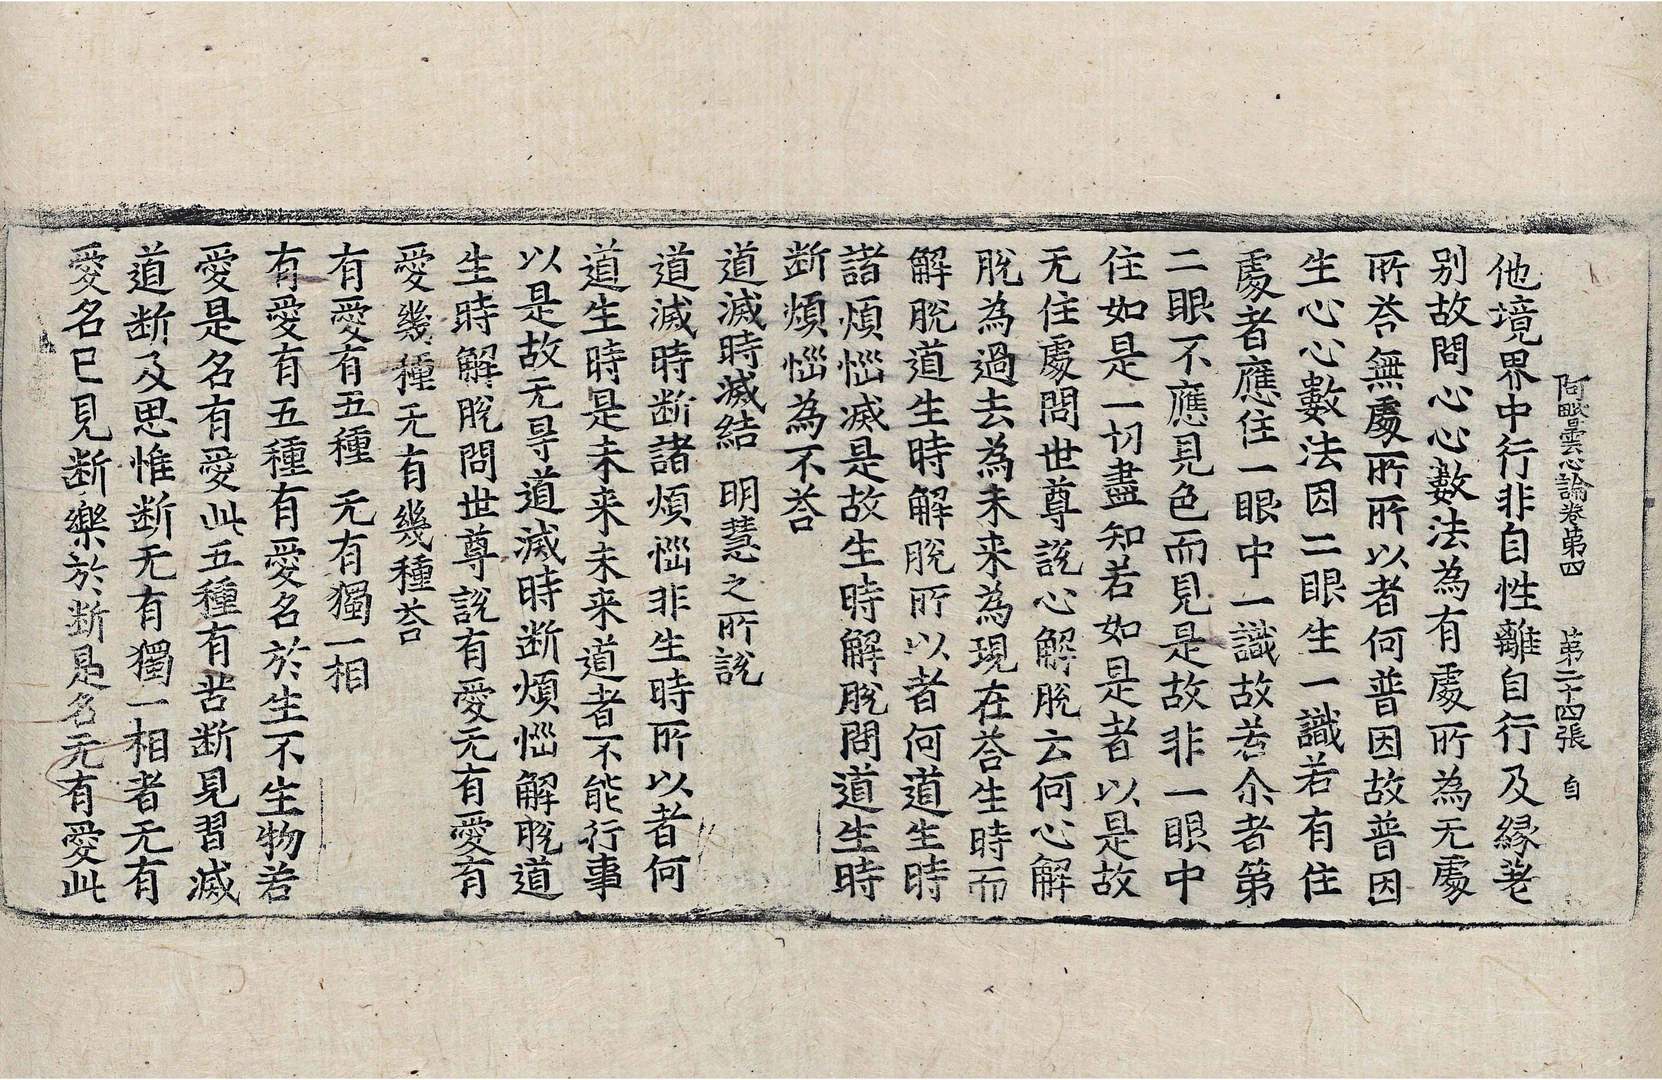 阿毗曇心論卷第四　第二十四張　自
他境界中行非自性離自行及緣老
別故問心心數法為有處所為无處
所荅無處所所以者何普因故普因
生心心數法因二眼生一識若有住
處者應住一眼中一識故若尒者第
二眼不應見色而見是故非一眼中
住如是一切盡知若如是者以是故
无住處問世尊說心解脫云何心解
脫為過去為未来為現在荅生時而
解脫道生時解解脫所以者何道生時
諸煩惱滅是故生時解脫問道生時
断煩惱為不荅
道滅時滅結　明慧之所說
道滅時断諸煩惱非生時所以者何
道生時是未来未来道者不能行事
以是故无㝵道滅時断煩惱解脫道
生時解脫問世尊說有愛无有愛有
愛幾種无有幾種荅
有愛有五種　无有獨一相
有愛有五種有有愛名於生不生物若
愛是名有有愛此五種有苦断見習滅
道断及思惟断无有獨一相者无有
愛名已見断樂於断是名无有愛此